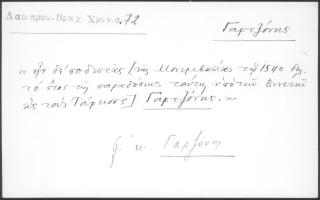 Λάμπρου, Βραχ. Χρον. σ. 72
Γαρτζόνης
« ἦτο δὲ ποδεστᾶς [τῆς Μονεμβασίας τῷ 1540 δηλ.
τὸ ἔτος τῆς παραδόσεως ταύτης ὑπὸ τῶν Βενετῶν
εἰς τοὺς Τούρκους] Γαρτζόνης. »
κ. Γαρζόνης